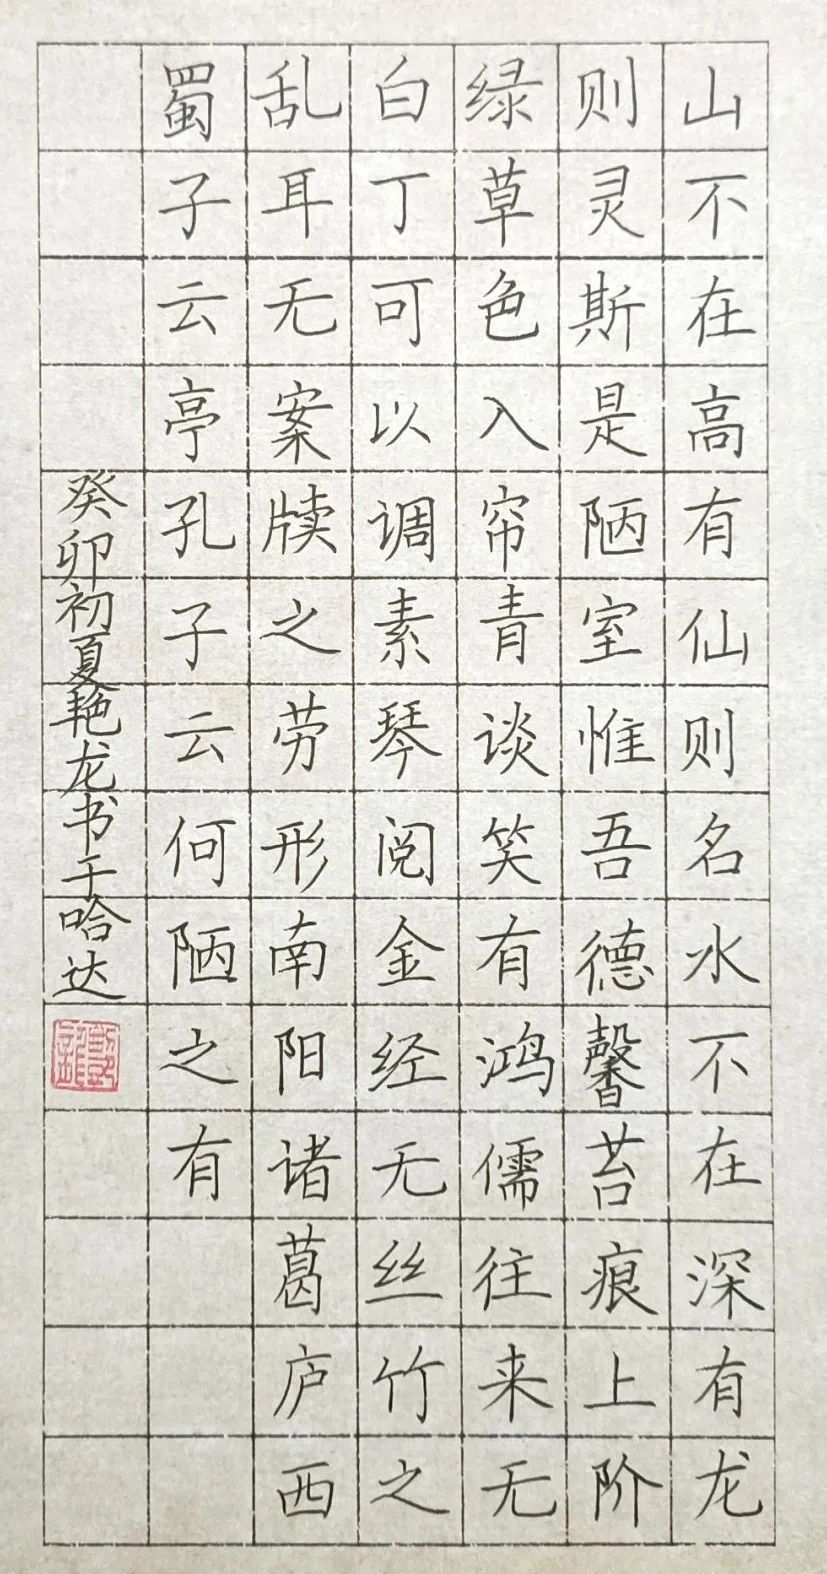 山不在高有仙则名水不在深有龙
则灵斯是陋室惟吾德馨苔痕上阶
绿草色入帘青谈笑有鸿儒往来无
白丁可以调素琴阅金经无丝竹之
乱耳无案牍之劳形南阳诸葛庐西
蜀子云亭孔子云何陋之有
癸卯初夏艳龙书于哈达